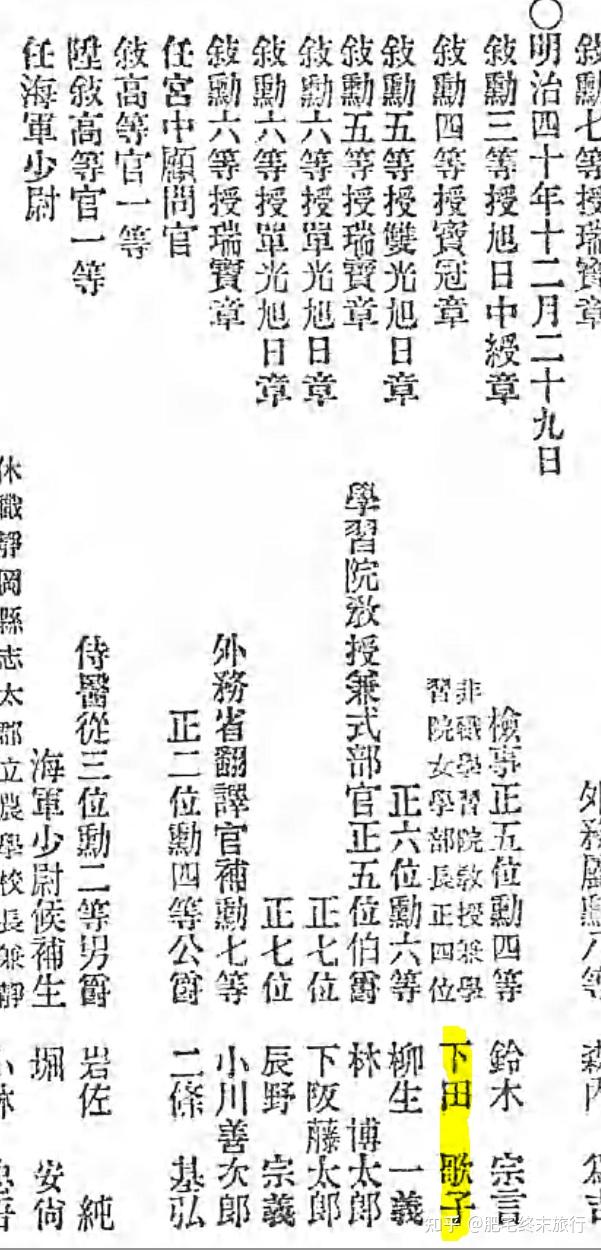 敍勳七等授瑞寶章 外務屬勳八等
○明治四十年十二月二十九日
敍勳三等授旭日中綬章 檢事正五位勳四等 鈴木 宗言
敍勳四等授寶冠章 非職學習院敎授兼學
習院女學部長正四位 下田 歌子
敍勳五等授雙光旭日章 正六位勳六等 柳生 一義
敍勳五等授瑞寶章 學習院敎授兼式部官正五位伯爵 林 博太郎
敍勳六等授單光旭日章 正七位 下阪藤太郎
敍勳六等授單光旭日章 正七位 辰野 宗義
敍勳六等授瑞寶章 外務省翻譯官補勳七等 小川善次郎
任宮中顧問官 正二位勳四等公爵 二條 基弘
敍高等官一等
陞敍高等官一等 侍醫從三位勳二等男爵 岩佐 純
任海軍少尉 海軍少尉候補生 堀 安尙
休職靜岡縣志太郡立農學校長兼靜 小林
知乎 @肥宅终末旅行